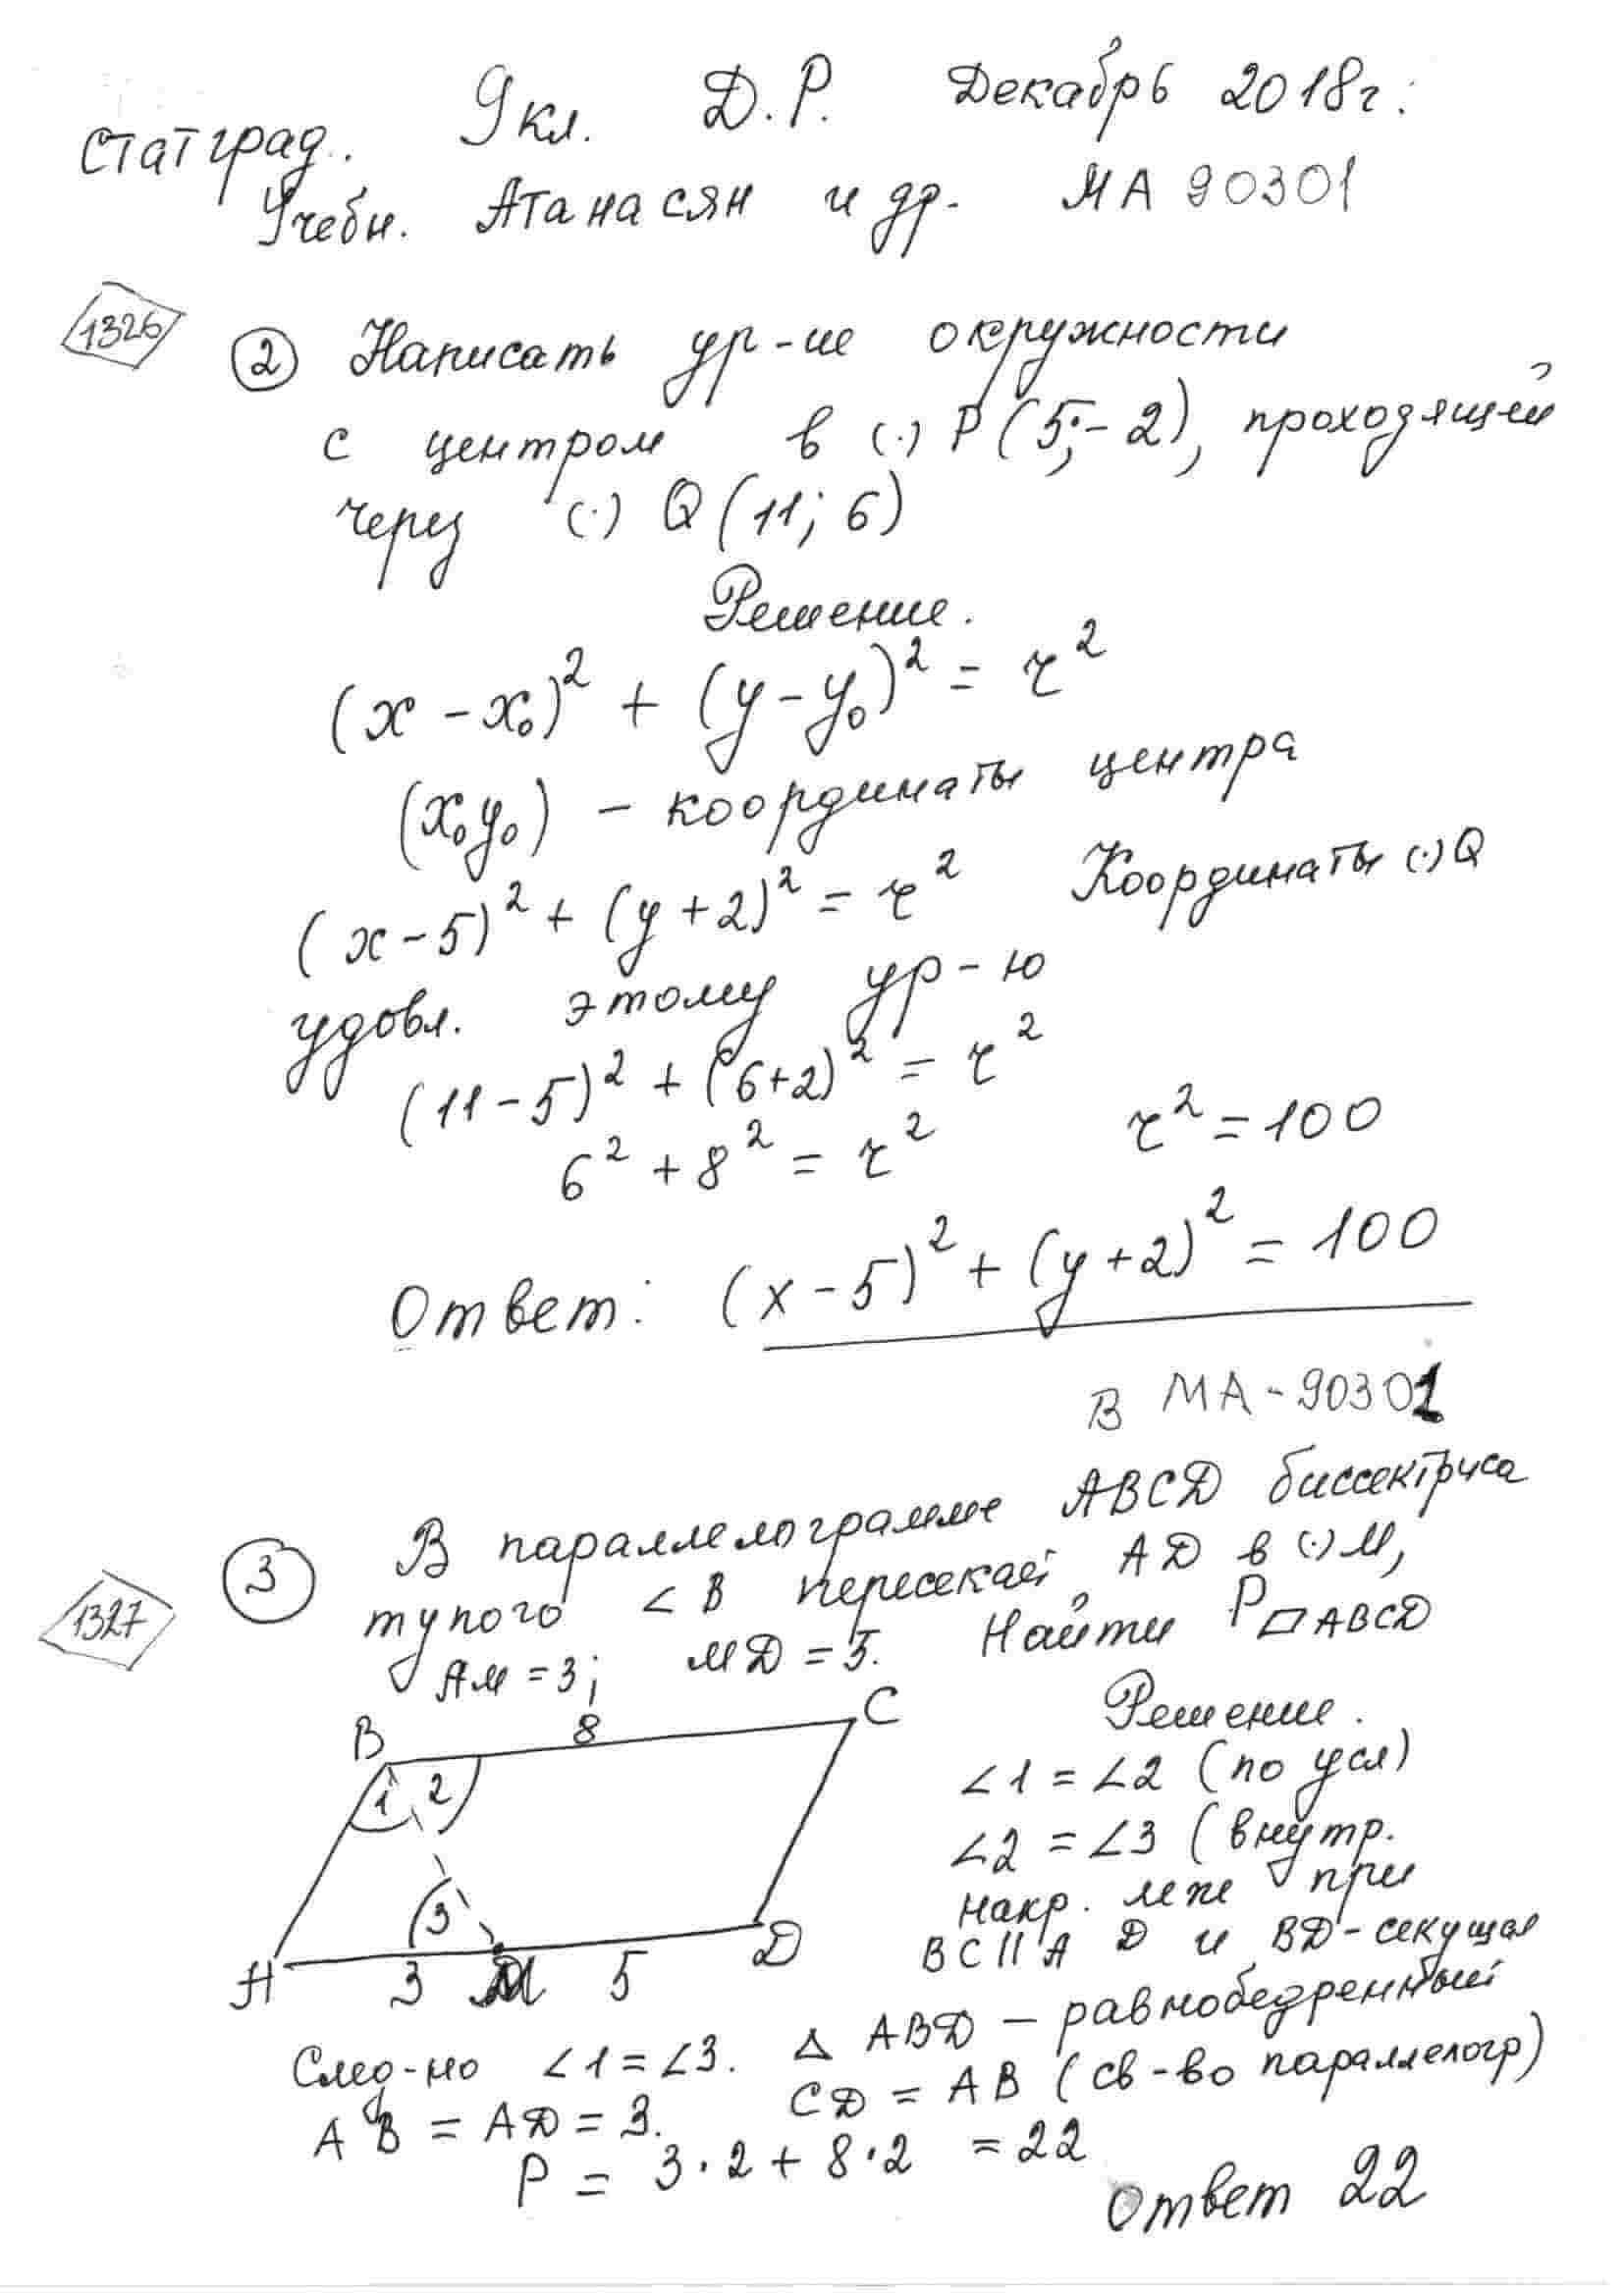 9 кл. Д.Р. Декабрь 2018г.
Статград.
Учебн. Атанасян и др. МА 90301
1326
② Написать ур-ие окружности
с центром в (·) P(5;-2), проходящей
через (·) Q(11; 6)
Решение.
(x - x₀)² + (y - y₀)² = r²
(x₀ y₀) - координаты центра
(x - 5)² + (y + 2)² = r² Координаты (·) Q
удовл. этому ур-ю
(11 - 5)² + (6+2)² = r²
6² + 8² = r² r² = 100
Ответ: (x - 5)² + (y + 2)² = 100
В МА-90301
③ В параллелограмме ABCD биссектриса
1327
тупого ∠B пересекает AD в (·) M,
AM = 3; MD = 5. Найти P▱ABCD
B 8 C
1 2
3
A 3 M 5 D
Решение.
∠1 = ∠2 (по усл)
∠2 = ∠3 (внутр.
накр. леж при
BC || AD и BD - секущая
След-но ∠1 = ∠3. △ ABD - равнобедренный
AB = AD = 3. CD = AB (св-во параллелогр)
P = 3·2 + 8·2 = 22
Ответ 22